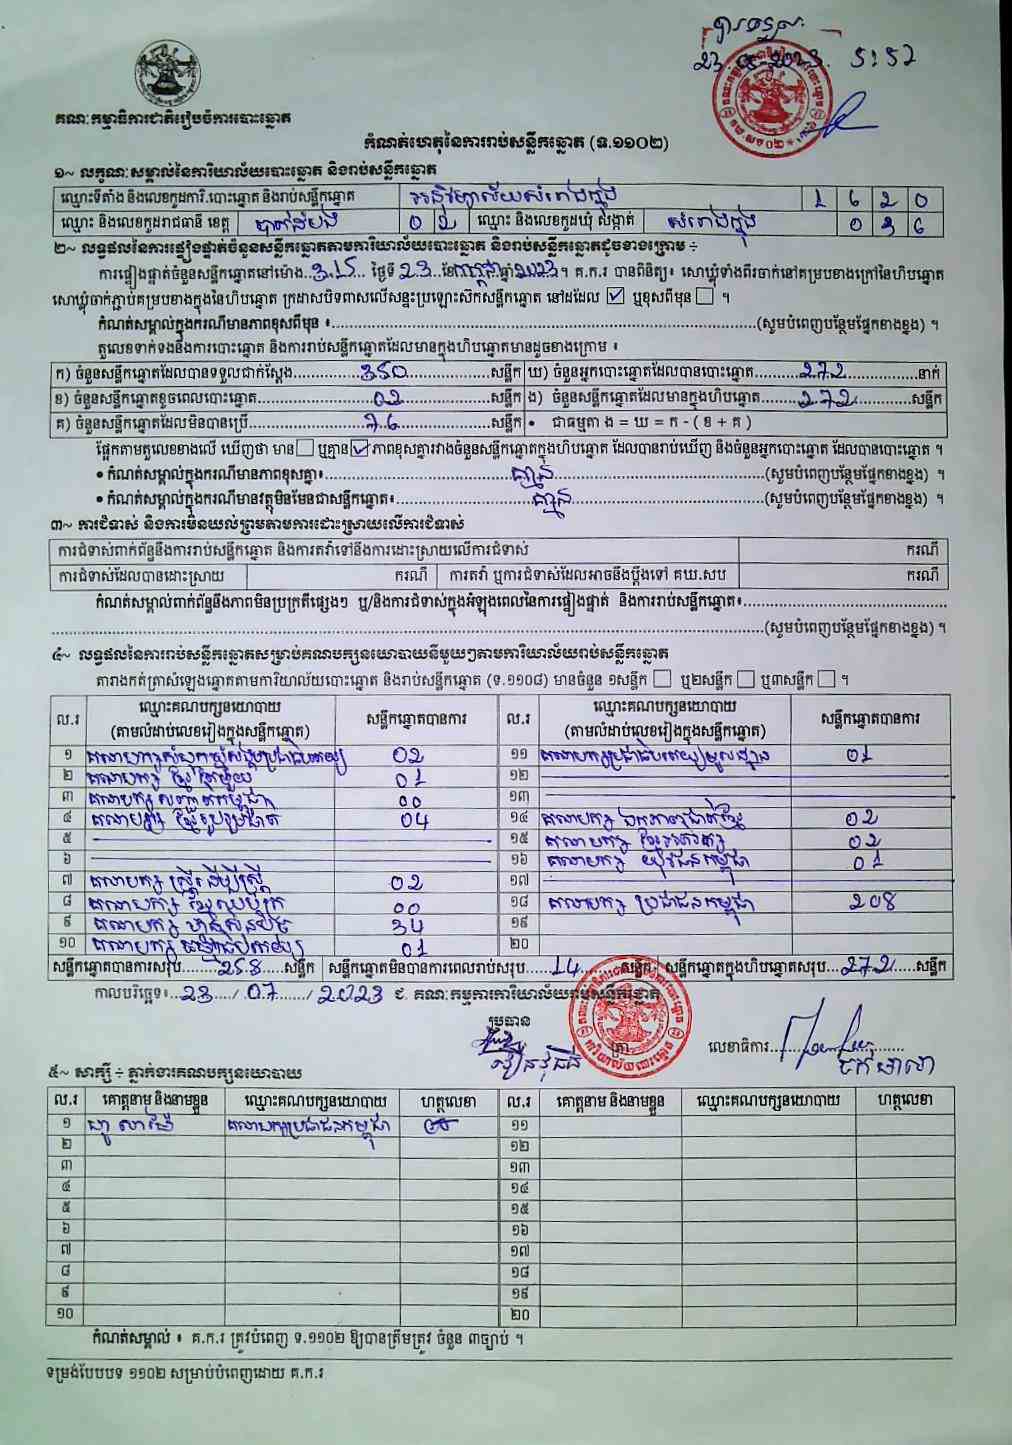 បានទទួល
23 07 2023 5:52
គណៈកម្មាធិការជាតិរៀបចំការបោះឆ្នោត
កំណត់ហេតុនៃការរាប់សន្លឹកឆ្នោត (ទ.១១០២)
១~ លក្ខណៈសម្គាល់នៃការិយាល័យបោះឆ្នោត និងរាប់សន្លឹកឆ្នោត
ឈ្មោះទីតាំង និងលេខកូដការិ.បោះឆ្នោត និងរាប់សន្លឹកឆ្នោត អនុវិទ្យាល័យសំរោងក្នុង 1 6 2 0
ឈ្មោះ និងលេខកូដរាជធានី ខេត្ត បាត់ដំបង 0 2 ឈ្មោះ និងលេខកូដឃុំ សង្កាត់ សំរោងក្នុង 0 3 6
២~ លទ្ធផលនៃការផ្ទៀងផ្ទាត់ចំនួនសន្លឹកឆ្នោតតាមការិយាល័យបោះឆ្នោត និងរាប់សន្លឹកឆ្នោតដូចខាងក្រោម ÷
ការផ្ទៀងផ្ទាត់ចំនួនសន្លឹកឆ្នោតនៅម៉ោង..3.15... ថ្ងៃទី 23 ខែកក្កដាឆ្នាំ2023។ គ.ក.រ បានពិនិត្យ៖ សោឃ្លុំទាំងពីរចាក់នៅគម្របខាងក្រៅនៃហិបឆ្នោត
សោឃ្លុំចាក់ភ្ជាប់គម្របខាងក្នុងនៃហិបឆ្នោត ក្រដាសបិទពាសលើសន្ទះប្រឡោះស៊កសន្លឹកឆ្នោត នៅដដែល ☑ ឬខុសពីមុន ☐ ។
កំណត់សម្គាល់ក្នុងករណីមានភាពខុសពីមុន ៖......(សូមបំពេញបន្ថែមផ្នែកខាងខ្នង) ។
តួលេខទាក់ទងនឹងការបោះឆ្នោត និងការរាប់សន្លឹកឆ្នោតដែលមានក្នុងហិបឆ្នោតមានដូចខាងក្រោម ៖
ក) ចំនួនសន្លឹកឆ្នោតដែលបានទទួលជាក់ស្តែង......350......សន្លឹក ឃ) ចំនួនអ្នកបោះឆ្នោតដែលបានបោះឆ្នោត......272......នាក់
ខ) ចំនួនសន្លឹកឆ្នោតខូចពេលបោះឆ្នោត......02......សន្លឹក ង) ចំនួនសន្លឹកឆ្នោតដែលមានក្នុងហិបឆ្នោត......272......សន្លឹក
គ) ចំនួនសន្លឹកឆ្នោតដែលមិនបានប្រើ......76......សន្លឹក • ជាធម្មតា ង = ឃ = ក - ( ខ + គ )
ផ្អែកតាមតួលេខខាងលើ ឃើញថា មាន ☐ ឬគ្មាន ☑ ភាពខុសគ្នារវាងចំនួនសន្លឹកឆ្នោតក្នុងហិបឆ្នោត ដែលបានរាប់ឃើញ និងចំនួនអ្នកបោះឆ្នោត ដែលបានបោះឆ្នោត ។
• កំណត់សម្គាល់ក្នុងករណីមានភាពខុសគ្នា៖......គ្មាន......(សូមបំពេញបន្ថែមផ្នែកខាងខ្នង) ។
• កំណត់សម្គាល់ក្នុងករណីមានវត្ថុមិនមែនជាសន្លឹកឆ្នោត៖......គ្មាន......(សូមបំពេញបន្ថែមផ្នែកខាងខ្នង) ។
៣~ ការជំទាស់ និងការមិនយល់ព្រមតាមការដោះស្រាយលើការជំទាស់
ការជំទាស់ពាក់ព័ន្ធនឹងការរាប់សន្លឹកឆ្នោត និងការតវ៉ាទៅនឹងការដោះស្រាយលើការជំទាស់ ករណី
ការជំទាស់ដែលបានដោះស្រាយ ករណី ការតវ៉ា ឬការជំទាស់ដែលអាចនឹងប្តឹងទៅ គឃ.សប ករណី
កំណត់សម្គាល់ពាក់ព័ន្ធនឹងភាពមិនប្រក្រតីផ្សេងៗ ឬ/និងការជំទាស់ក្នុងអំឡុងពេលនៃការផ្ទៀងផ្ទាត់ និងការរាប់សន្លឹកឆ្នោត៖......
......(សូមបំពេញបន្ថែមផ្នែកខាងខ្នង) ។
៤~ លទ្ធផលនៃការរាប់សន្លឹកឆ្នោតសម្រាប់គណបក្សនយោបាយនីមួយៗតាមការិយាល័យរាប់សន្លឹកឆ្នោត
តារាងកត់ត្រាសំឡេងឆ្នោតតាមការិយាល័យបោះឆ្នោត និងរាប់សន្លឹកឆ្នោត (ទ.១១០៨) មានចំនួន ១សន្លឹក ☐ ឬ២សន្លឹក ☐ ឬ៣សន្លឹក ☐ ។
ល.រ ឈ្មោះគណបក្សនយោបាយ (តាមលំដាប់លេខរៀងក្នុងសន្លឹកឆ្នោត) សន្លឹកឆ្នោតបានការ ល.រ ឈ្មោះគណបក្សនយោបាយ (តាមលំដាប់លេខរៀងក្នុងសន្លឹកឆ្នោត) សន្លឹកឆ្នោតបានការ
១ 02 ១១ គណបក្សប្រជាធិបតេយ្យមូលដ្ឋាន 01
២ គណបក្ស ខ្មែរតែមួយ 01 ១២
៣ គណបក្ស សញ្ជាតិកម្ពុជា 00 ១៣
៤ គណបក្ស ខ្មែររួបរួមជាតិ 04 ១៤ គណបក្ស ឯកភាពជាតិខ្មែរ 02
៥ ១៥ គណបក្ស ខ្មែរអភិរក្ស 02
៦ ១៦ គណបក្ស យុវជនកម្ពុជា 01
៧ គណបក្ស ស្ត្រីដើម្បីស្ត្រី 02 ១៧
៨ គណបក្ស ខ្មែរឈប់ក្រ 00 ១៨ គណបក្ស ប្រជាជនកម្ពុជា 208
៩ គណបក្ស ហ្វ៊ុនស៊ិនប៉ិច 34 ១៩
១០ គណបក្ស ធម្មាធិបតេយ្យ 01 ២០
សន្លឹកឆ្នោតបានការសរុប......258......សន្លឹក សន្លឹកឆ្នោតមិនបានការពេលរាប់សរុប......14......សន្លឹក សន្លឹកឆ្នោតក្នុងហិបឆ្នោតសរុប...272...សន្លឹក
កាលបរិច្ឆេទ៖...23..../..07....../..2023 ជ. គណៈកម្មការការិយាល័យរាប់សន្លឹកឆ្នោត
ប្រធាន
ត្រា លេខាធិការ......
៥~ សាក្សី ÷ ភ្នាក់ងារគណបក្សនយោបាយ
ល.រ គោត្តនាម និងនាមខ្លួន ឈ្មោះគណបក្សនយោបាយ ហត្ថលេខា ល.រ គោត្តនាម និងនាមខ្លួន ឈ្មោះគណបក្សនយោបាយ ហត្ថលេខា
១ គណបក្សប្រជាជនកម្ពុជា ១១
២ ១២
៣ ១៣
៤ ១៤
៥ ១៥
៦ ១៦
៧ ១៧
៨ ១៨
៩ ១៩
១០ ២០
កំណត់សម្គាល់ ៖ គ.ក.រ ត្រូវបំពេញ ទ.១១០២ ឱ្យបានត្រឹមត្រូវ ចំនួន ៣ច្បាប់ ។
ទម្រង់បែបបទ ១១០២ សម្រាប់បំពេញដោយ គ.ក.រ